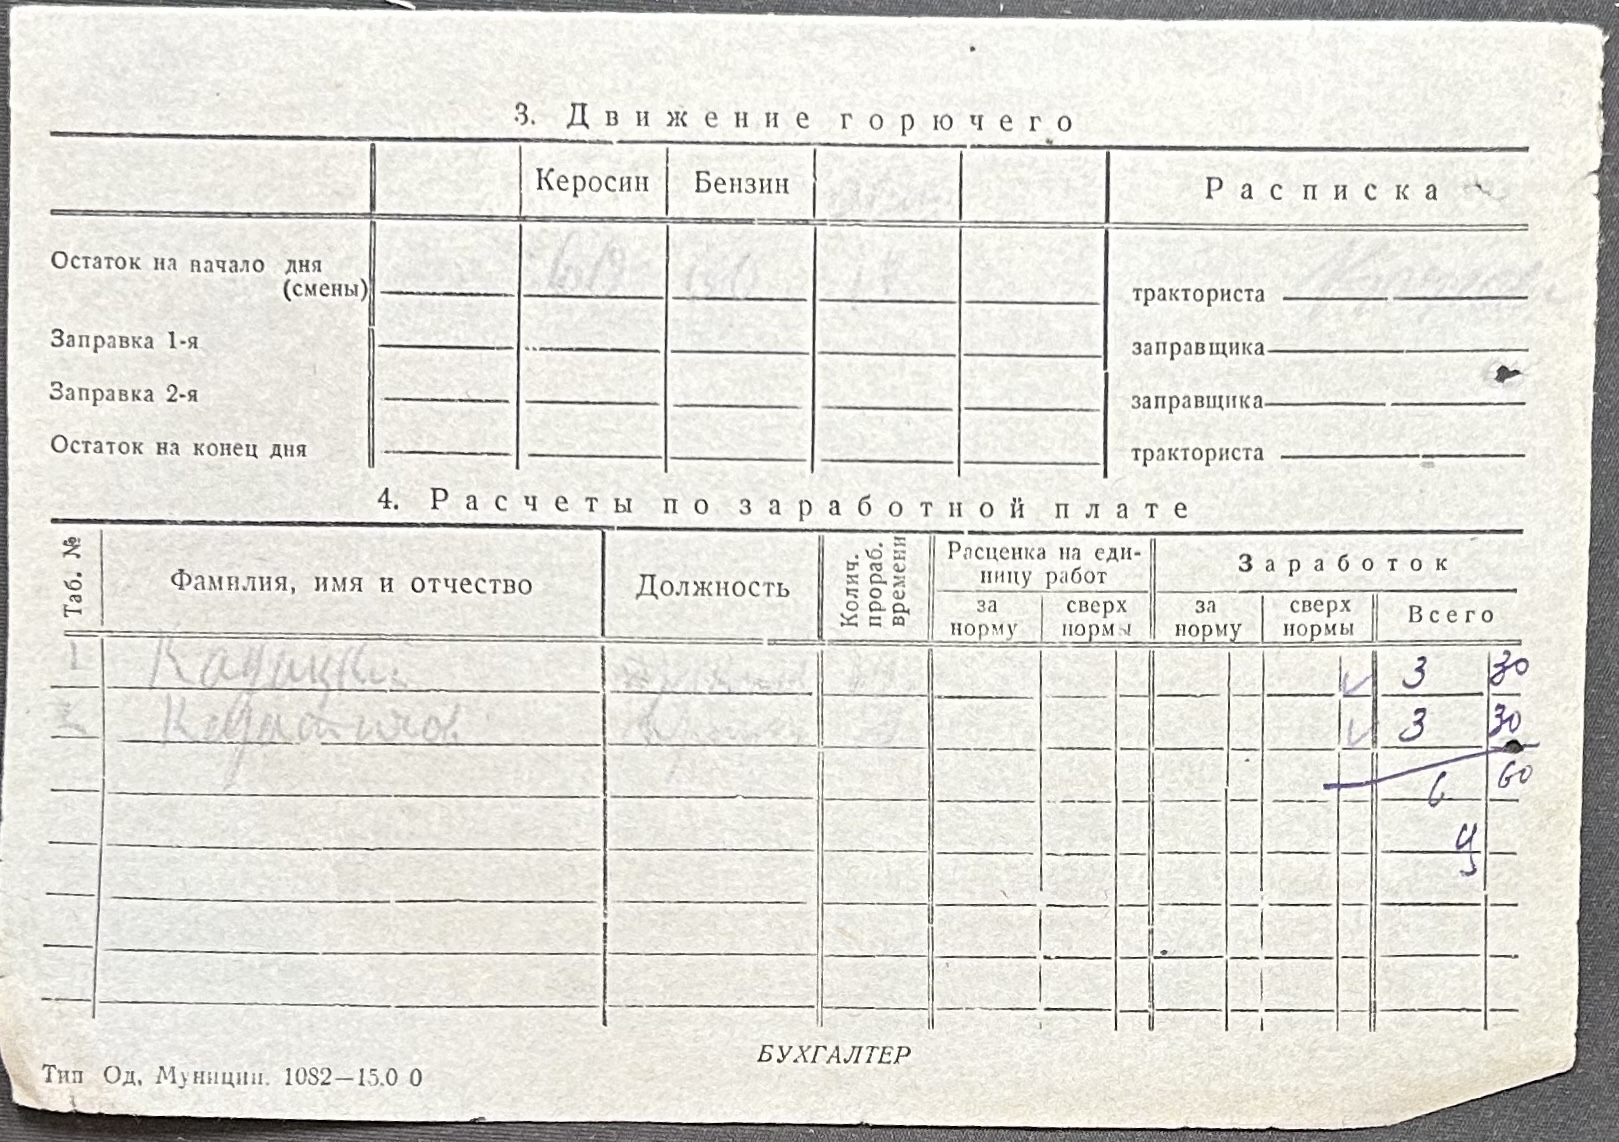 3. Движение горючего
Керосин Бензин Расписка
Остаток на начало дня
(смены)
тракториста
Заправка 1-я заправщика
Заправка 2-я заправщика
Остаток на конец дня тракториста
4. Расчеты по заработной плате
Таб. № Фамилия, имя и отчество Должность Колич. прораб. времени Расценка на еди-
ницу работ Заработок
за норму сверх нормы за норму сверх нормы Всего
1 3 30
2 3 30
6 60
БУХГАЛТЕР
Тип Од, Муниции. 1082—15.0 0